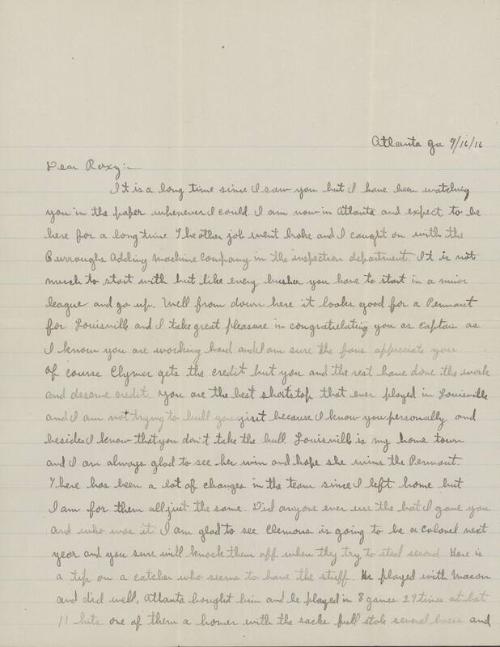 Atlanta Ga 9/16/16
Dear Roxy:-
It is a long time since I saw you but I have been watching
you in the paper whenever I could I am now in Atlanta and expect to be
here for a long time The other job went broke and I caught on with the
Burroughs Adding Machine Company in the inspection department It is not
much to start with but like every busher you have to start in a minor
league and go up. Well from down here it looks good for a Pennant
for Louisville and I take great pleasure in congratulating you as captain as
I know you are working hard and I am sure the fans appreciate you
of course Clymer gets the credit but you and the rest have done the work
and deserve credit. you are the best shortstop that ever played in Louisville
and I am not trying to bull you just because I know you personally and
besides I know that you don't take the bull Louisville is my home town
and I am always glad to see her win and hope she wins the Pennant.
There has been a lot of changes in the team since I left home but
I am for them all just the same. Did anyone ever use the bat I gave you
and who was it. I am glad to see Clemons is going to be a colonel next
year and you sure will knock them off when they try to steal second Here is
a tip on a catcher who seems to have the stuff. He played with Macon
and did well, Atlanta bought him and he played in 8 games 29 times at bat
11 hits one of them a homer with the sacks full stole several bases and